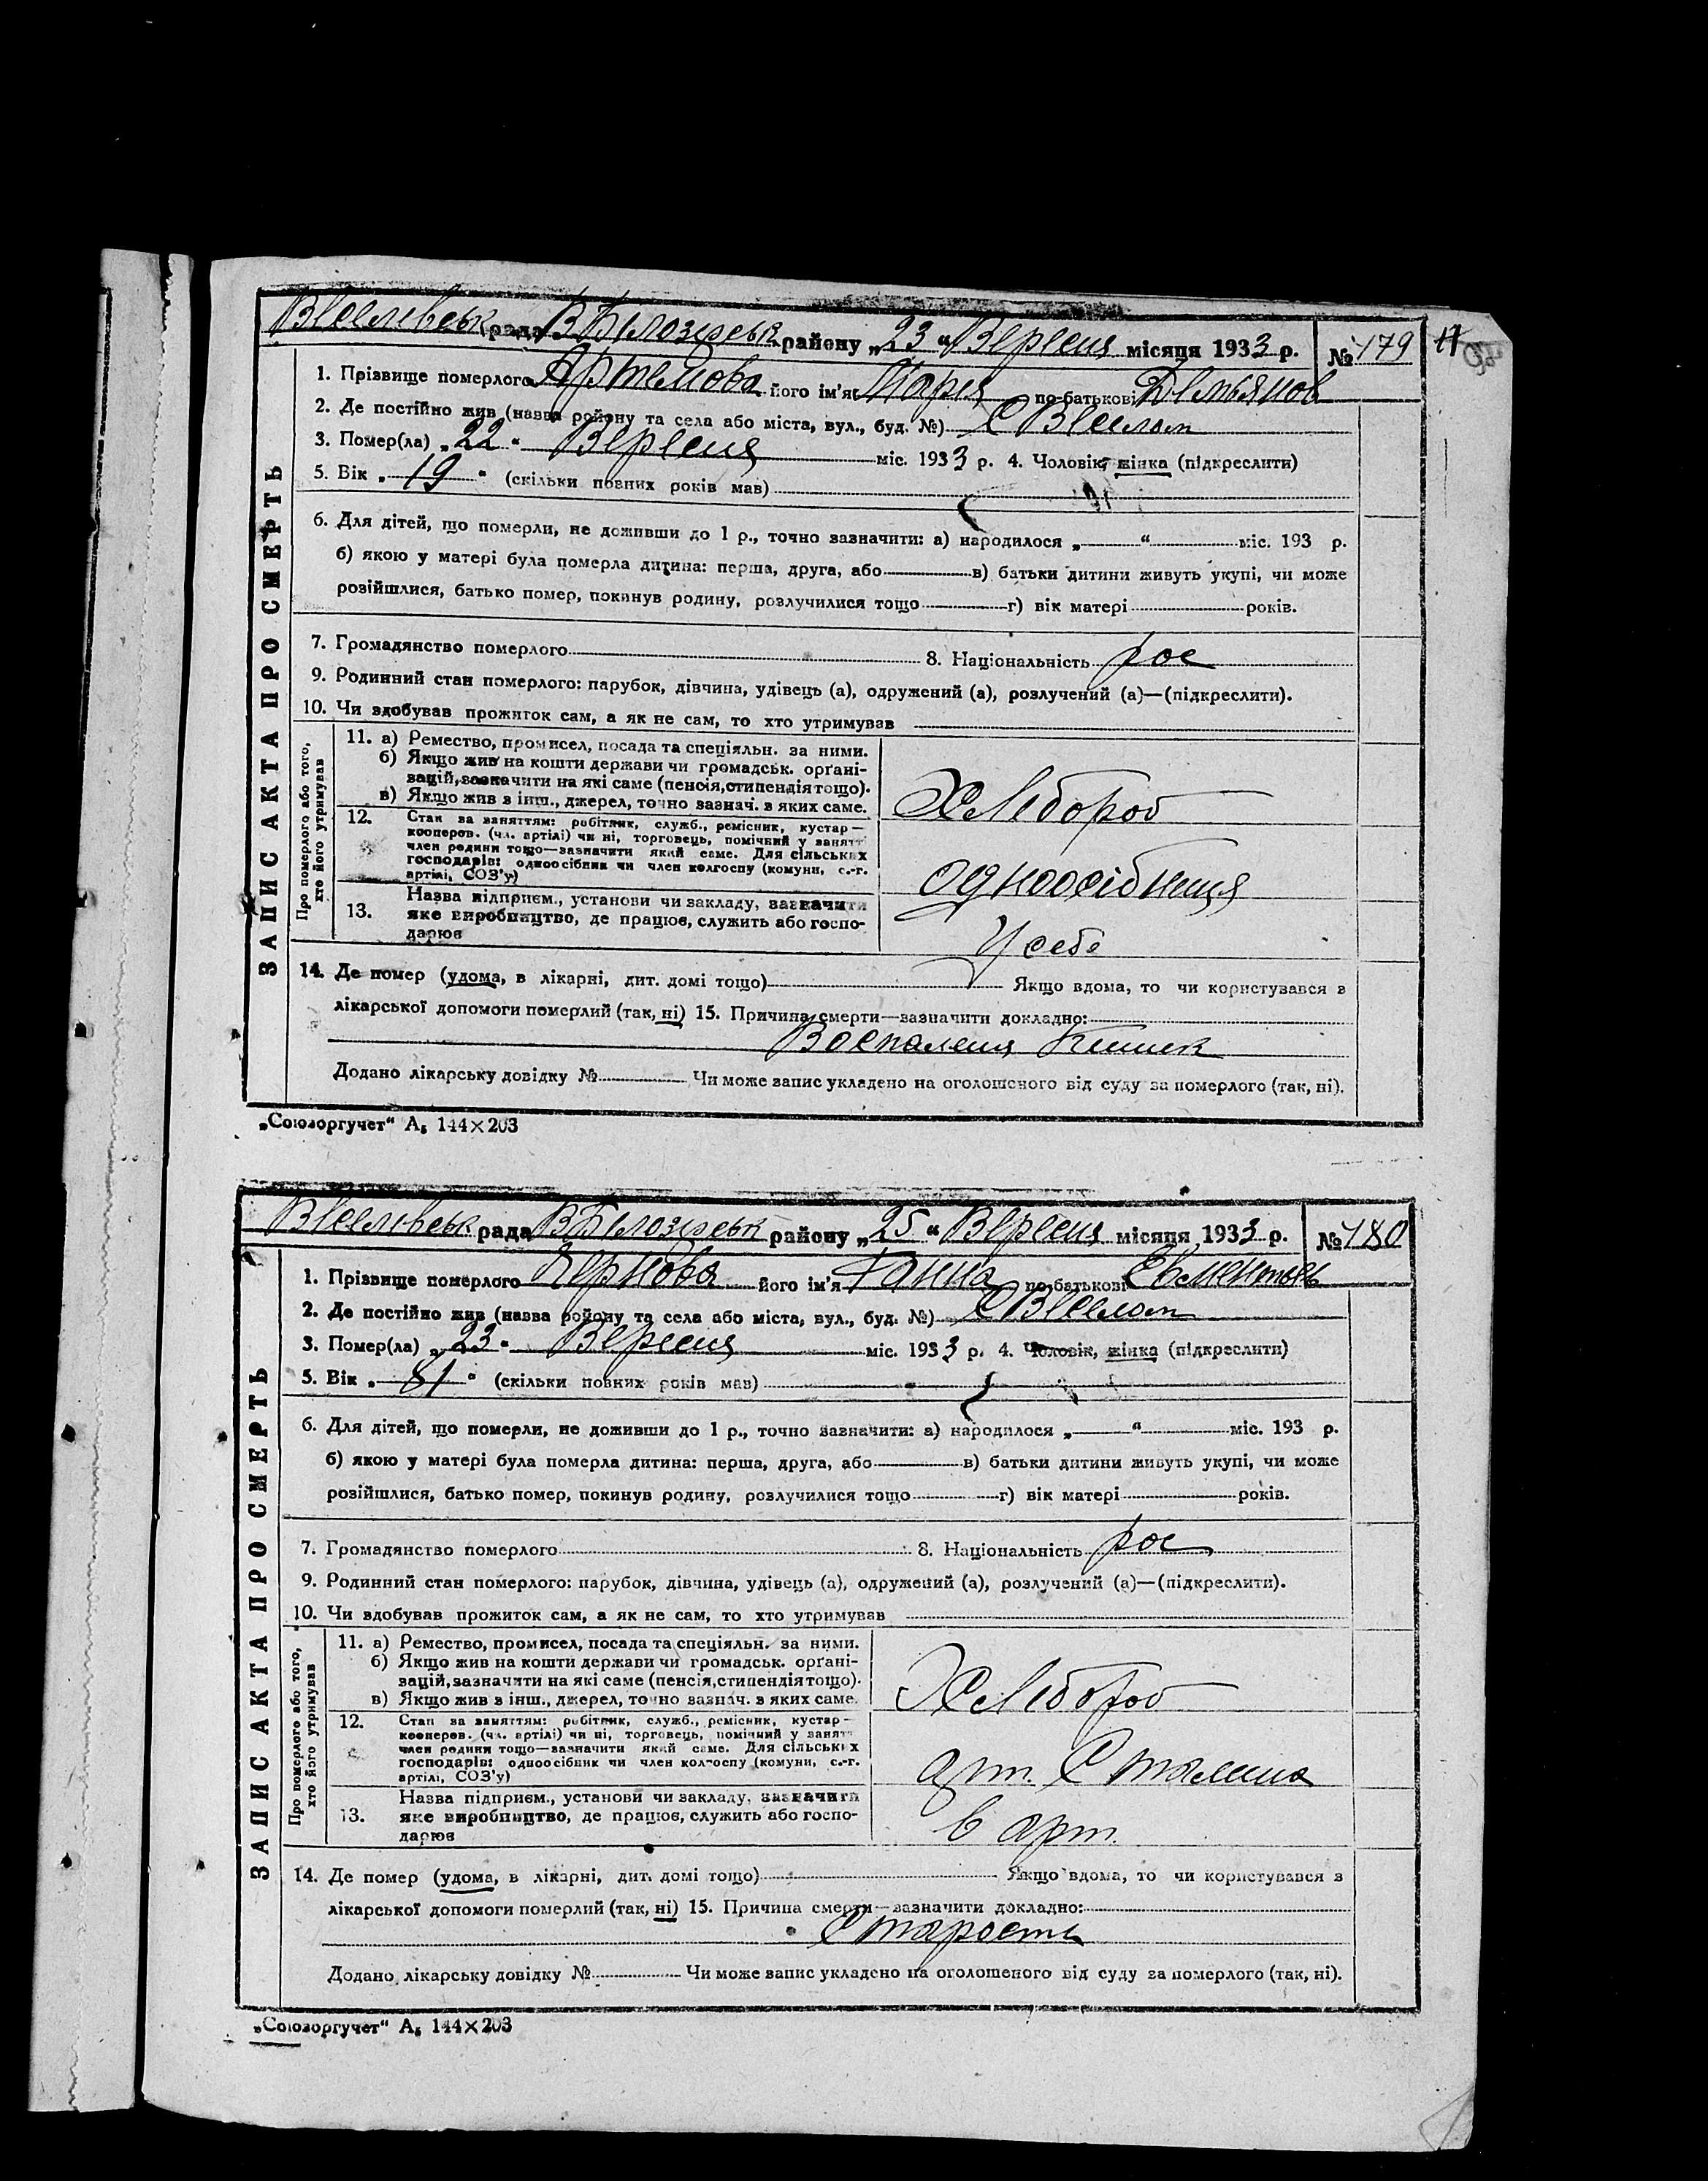 Веселівськ рада В Білозірськ району „23“ Вересня місяця 1933 р. № 179
17
1. Прізвище померлого Артемова його ім'я Марія по-батькові Демьянов
2. Де постійно жив (назва району та села або міста, вул., буд. №) С Веселом
3. Помер(ла) „22“ Вересня міс. 1933 р. 4. Чоловік, жінка (підкреслити)
5. Вік „19“ (скільки повних років мав)
6. Для дітей, що померли, не доживши до 1 р., точно зазначити: а) народилося „ “ міс. 193 р.
б) якою у матері була померла дитина: перша, друга, або в) батьки дитини живуть укупі, чи може
розійшлися, батько помер, покинув родину, розлучилися тощо г) вік матері років.
7. Громадянство померлого 8. Національність рос
9. Родинний стан померлого: парубок, дівчина, удівець (а), одружений (а), розлучений (а)—(підкреслити).
10. Чи здобував прожиток сам, а як не сам, то хто утримував
ЗАПИС АКТА ПРО СМЕРТЬ
Про померлого або того,
хто його утримував
11. а) Ремество, промисел, посада та спеціяльн. за ними.
б) Якщо жив на кошти держави чи громадськ. орґані-
зацій, зазначити на які саме (пенсія, стипендія тощо).
в) Якщо жив в інш., джерел, точно зазнач. з яких саме.
Хлебороб
12. Стан за заняттям: робітник, служб., ремісник, кустар—
кооперов. (чл. артілі) чи ні, торговець, помічний у занятт
член родини тощо—зазначити який саме. Для сільських
господарів: одноосібник чи член колгоспу (комуни, с.-г.
артілі, СОЗ'у)
одноосібниця
13. Назва підприєм., установи чи закладу, зазначити
яке виробництво, де працює, служить або госпо-
дарює
У себе
14. Де помер (удома, в лікарні, дит. домі тощо) Якщо вдома, то чи користувався з
лікарської допомоги померлий (так, ні) 15. Причина смерти—зазначити докладно:
Воспаленя Кишик
Додано лікарську довідку № Чи може запис укладено на оголошеного від суду за померлого (так, ні).
„Союзоргучет“ А₅ 144×203
Веселівськ рада В Білозірськ району „25“ Вересня місяця 1933 р. № 180
1. Прізвище померлого Чернова його ім'я Ганна по-батькові Евментьев
2. Де постійно жив (назва району та села або міста, вул., буд. №) С Веселом
3. Помер(ла) „23“ Вересня міс. 1933 р. 4. Чоловік, жінка (підкреслити)
5. Вік „81“ (скільки повних років мав)
6. Для дітей, що померли, не доживши до 1 р., точно зазначити: а) народилося „ “ міс. 193 р.
б) якою у матері була померла дитина: перша, друга, або в) батьки дитини живуть укупі, чи може
розійшлися, батько помер, покинув родину, розлучилися тощо г) вік матері років.
7. Громадянство померлого 8. Національність рос
9. Родинний стан померлого: парубок, дівчина, удівець (а), одружений (а), розлучений (а)—(підкреслити).
10. Чи здобував прожиток сам, а як не сам, то хто утримував
ЗАПИС АКТА ПРО СМЕРТЬ
Про померлого або того,
хто його утримував
11. а) Ремество, промисел, посада та спеціяльн. за ними.
б) Якщо жив на кошти держави чи громадськ. орґані-
зацій, зазначити на які саме (пенсія, стипендія тощо).
в) Якщо жив в інш., джерел, точно зазнач. з яких саме.
Хлебороб
12. Стан за заняттям: робітник, служб., ремісник, кустар—
кооперов. (чл. артілі) чи ні, торговець, помічний у занятт
член родини тощо—зазначити який саме. Для сільських
господарів: одноосібник чи член колгоспу (комуни, с.-г.
артілі, СОЗ'у)
арт. Сталина
13. Назва підприєм., установи чи закладу, зазначити
яке виробництво, де працює, служить або госпо-
дарює
в арт.
14. Де помер (удома, в лікарні, дит. домі тощо) Якщо вдома, то чи користувався з
лікарської допомоги померлий (так, ні) 15. Причина смерти—зазначити докладно:
Старость
Додано лікарську довідку № Чи може запис укладено на оголошеного від суду за померлого (так, ні).
„Союзоргучет“ А₅ 144×203